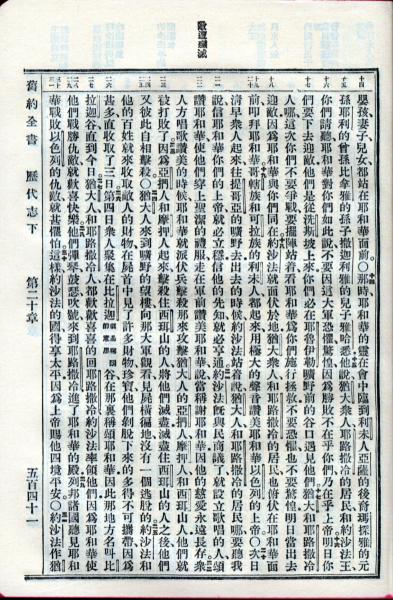 嬰孩妻子兒女都站在耶和華面前〇那時耶和華的靈在會中臨到利未人亞薩的後裔瑪探雅的元
孫耶利的曾孫比拿雅的孫子撒迦利雅的兒子雅哈悉他說猶大衆人耶路撒冷的居民和約沙法王
你們請聽耶和華對你們如此說不要因這大軍恐懼驚惶因爲勝敗不在乎你們乃在乎上帝明日你
們要下去迎敵他們是從洗斯坡上來你們必在耶魯伊勒曠野前的谷口遇見他們猶大和耶路撒冷
人哪這次你們不要爭戰要擺陣站着看耶和華爲你們施行拯救不要恐懼也不要驚惶明日當出去
迎敵因爲耶和華與你們同在約沙法就面伏於地猶大衆人和耶路撒冷的居民也俯伏在耶和華面
前叩拜耶和華哥轄族和可拉族的利未人都起來用極大的聲音讚美耶和華以色列的上帝〇次日
清早衆人起來往提哥亞的曠野去出去的時候約沙法站着說猶大人和耶路撒冷的居民哪要聽我
說信耶和華你們的上帝就必立穩信他的先知就必亨通約沙法旣與民商議了就設立歌唱的人頌
讚耶和華使他們穿上聖潔的禮服走在軍前讚美耶和華說當稱謝耶和華因他的慈愛永遠長存衆
人方唱歌讚美的時候耶和華就派伏兵擊殺那來攻擊猶大人的亞捫人摩押人和西珥山人他們就
被打敗了因爲亞捫人和摩押人起來擊殺住西珥山的人將他們滅盡滅盡住西珥山的人之後他們
又彼此自相擊殺〇猶大人來到曠野的望樓向那大軍觀看見屍橫徧地沒有一個逃脫的約沙法和
他的百姓就來收取敵人的財物在屍首中見了許多財物珍寶他們剝脫下來的多得不可攜帶因爲
甚多直收取了三日第四日衆人聚集在比拉迦谷在那裏稱頌耶和華因此那地方名叫比
拉迦谷直到今日猶大人和耶路撒冷人都歡歡喜喜的回耶路撒冷約沙法率領他們因爲耶和華使
他們戰勝仇敵就歡喜快樂他們彈琴鼓瑟吹號來到耶路撒冷進了耶和華的殿列邦諸國聽見耶和
華戰敗以色列的仇敵就甚懼怕這樣約沙法的國得享太平因爲上帝賜他四境平安〇約沙法作猶
舊約全書 歷代志下 第二十章 五百四十一